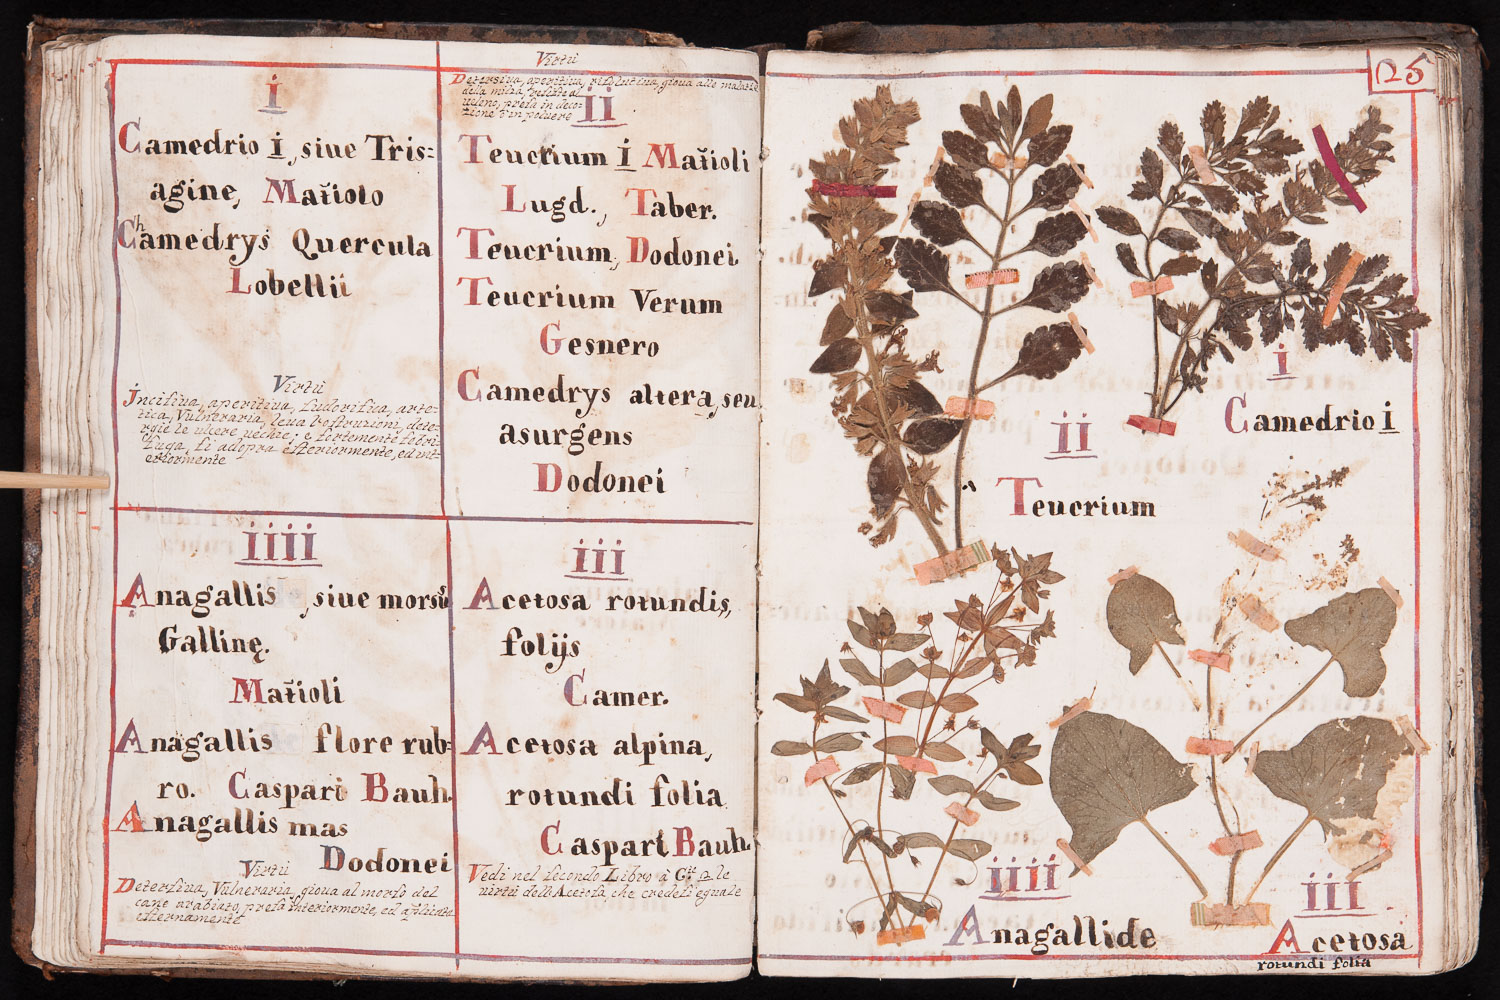 i
Camedrio i, siue Tris=
agine, Matiolo
Chamedrys Quercula
Lobellii
Virtù
Incisiua, aperitiua, sudorifica, arte=
tica, Vulneraria, leua l'ostruzioni, deter=
gie le ulcere uechie; e fortemente febri=
fuga, si adopra esteriormente, ed int=
eriormente
Virtù
Detersiua, aperitiua, risolutiua, gioua alle malatie
della milza, resiste al
ueleno, presa in deco=
tione ò in poluere
ii
Teucrium i Matioli
Lugd., Taber.
Teucrium, Dodonei
Teucrium Verum
Gesnero
Camedrys altera, seu
asurgens
Dodonei
iiii
Anagallis, siue morsū
Gallinę.
Matioli
Anagallis flore rub=
ro. Caspari Bauh.
Anagallis mas
Dodonei
Virtù
Detersiua, Vulneraria, gioua al morso del
cane arabiato, presa interiormente, ed aplicata
esternamente
iii
Acetosa rotundis,
folijs
Camer.
Acetosa alpina,
rotundi folia
Caspari Bauh.
Vedi nel secondo Libro à le
uirtù dell'Acetosa che credesi eguale
125
i
Camedrio i
ii
Teucrium
iiii
Anagallide
iii
Acetosa
rotundi folia